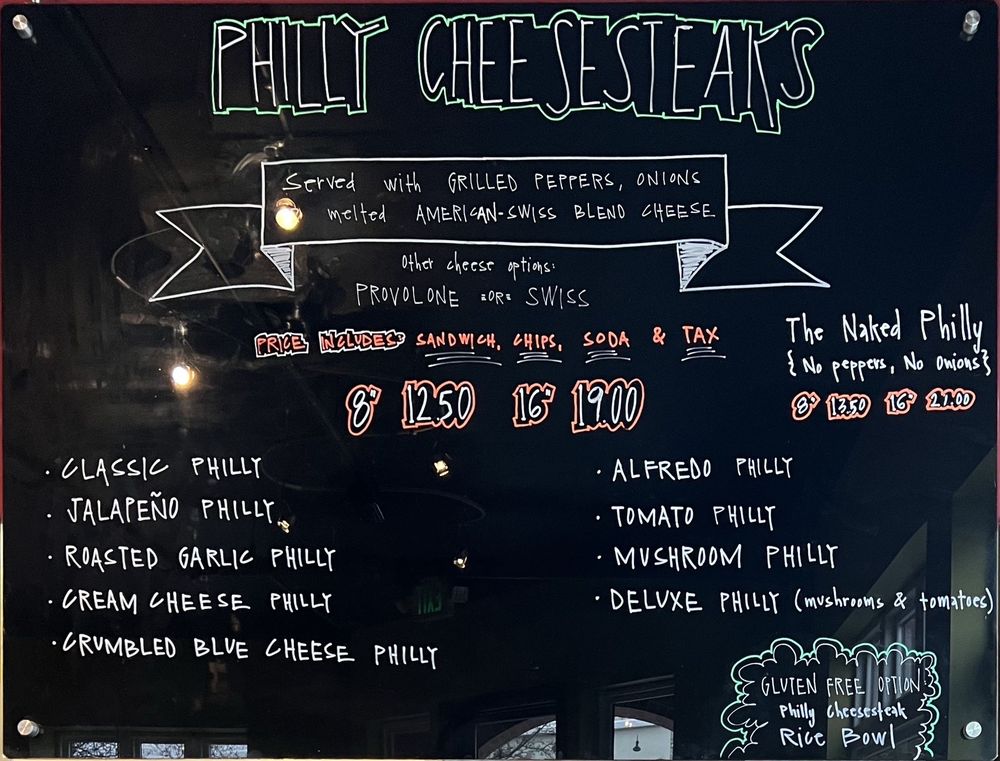 PHILLY CHEESESTEAKS
Served with GRILLED PEPPERS, ONIONS
melted AMERICAN-SWISS BLEND CHEESE
Other cheese options:
PROVOLONE =OR= SWISS
PRICE INCLUDES: SANDWICH, CHIPS, SODA & TAX
8" 12.50 16" 19.00
The Naked Philly
{No peppers, No Onions}
8" 13.50 16" 21.00
· CLASSIC PHILLY
· JALAPEÑO PHILLY
· ROASTED GARLIC PHILLY
· CREAM CHEESE PHILLY
· CRUMBLED BLUE CHEESE PHILLY
· ALFREDO PHILLY
· TOMATO PHILLY
· MUSHROOM PHILLY
· DELUXE PHILLY (mushrooms & tomatoes)
GLUTEN FREE OPTION:
Philly Cheesesteak
Rice Bowl
EXIT